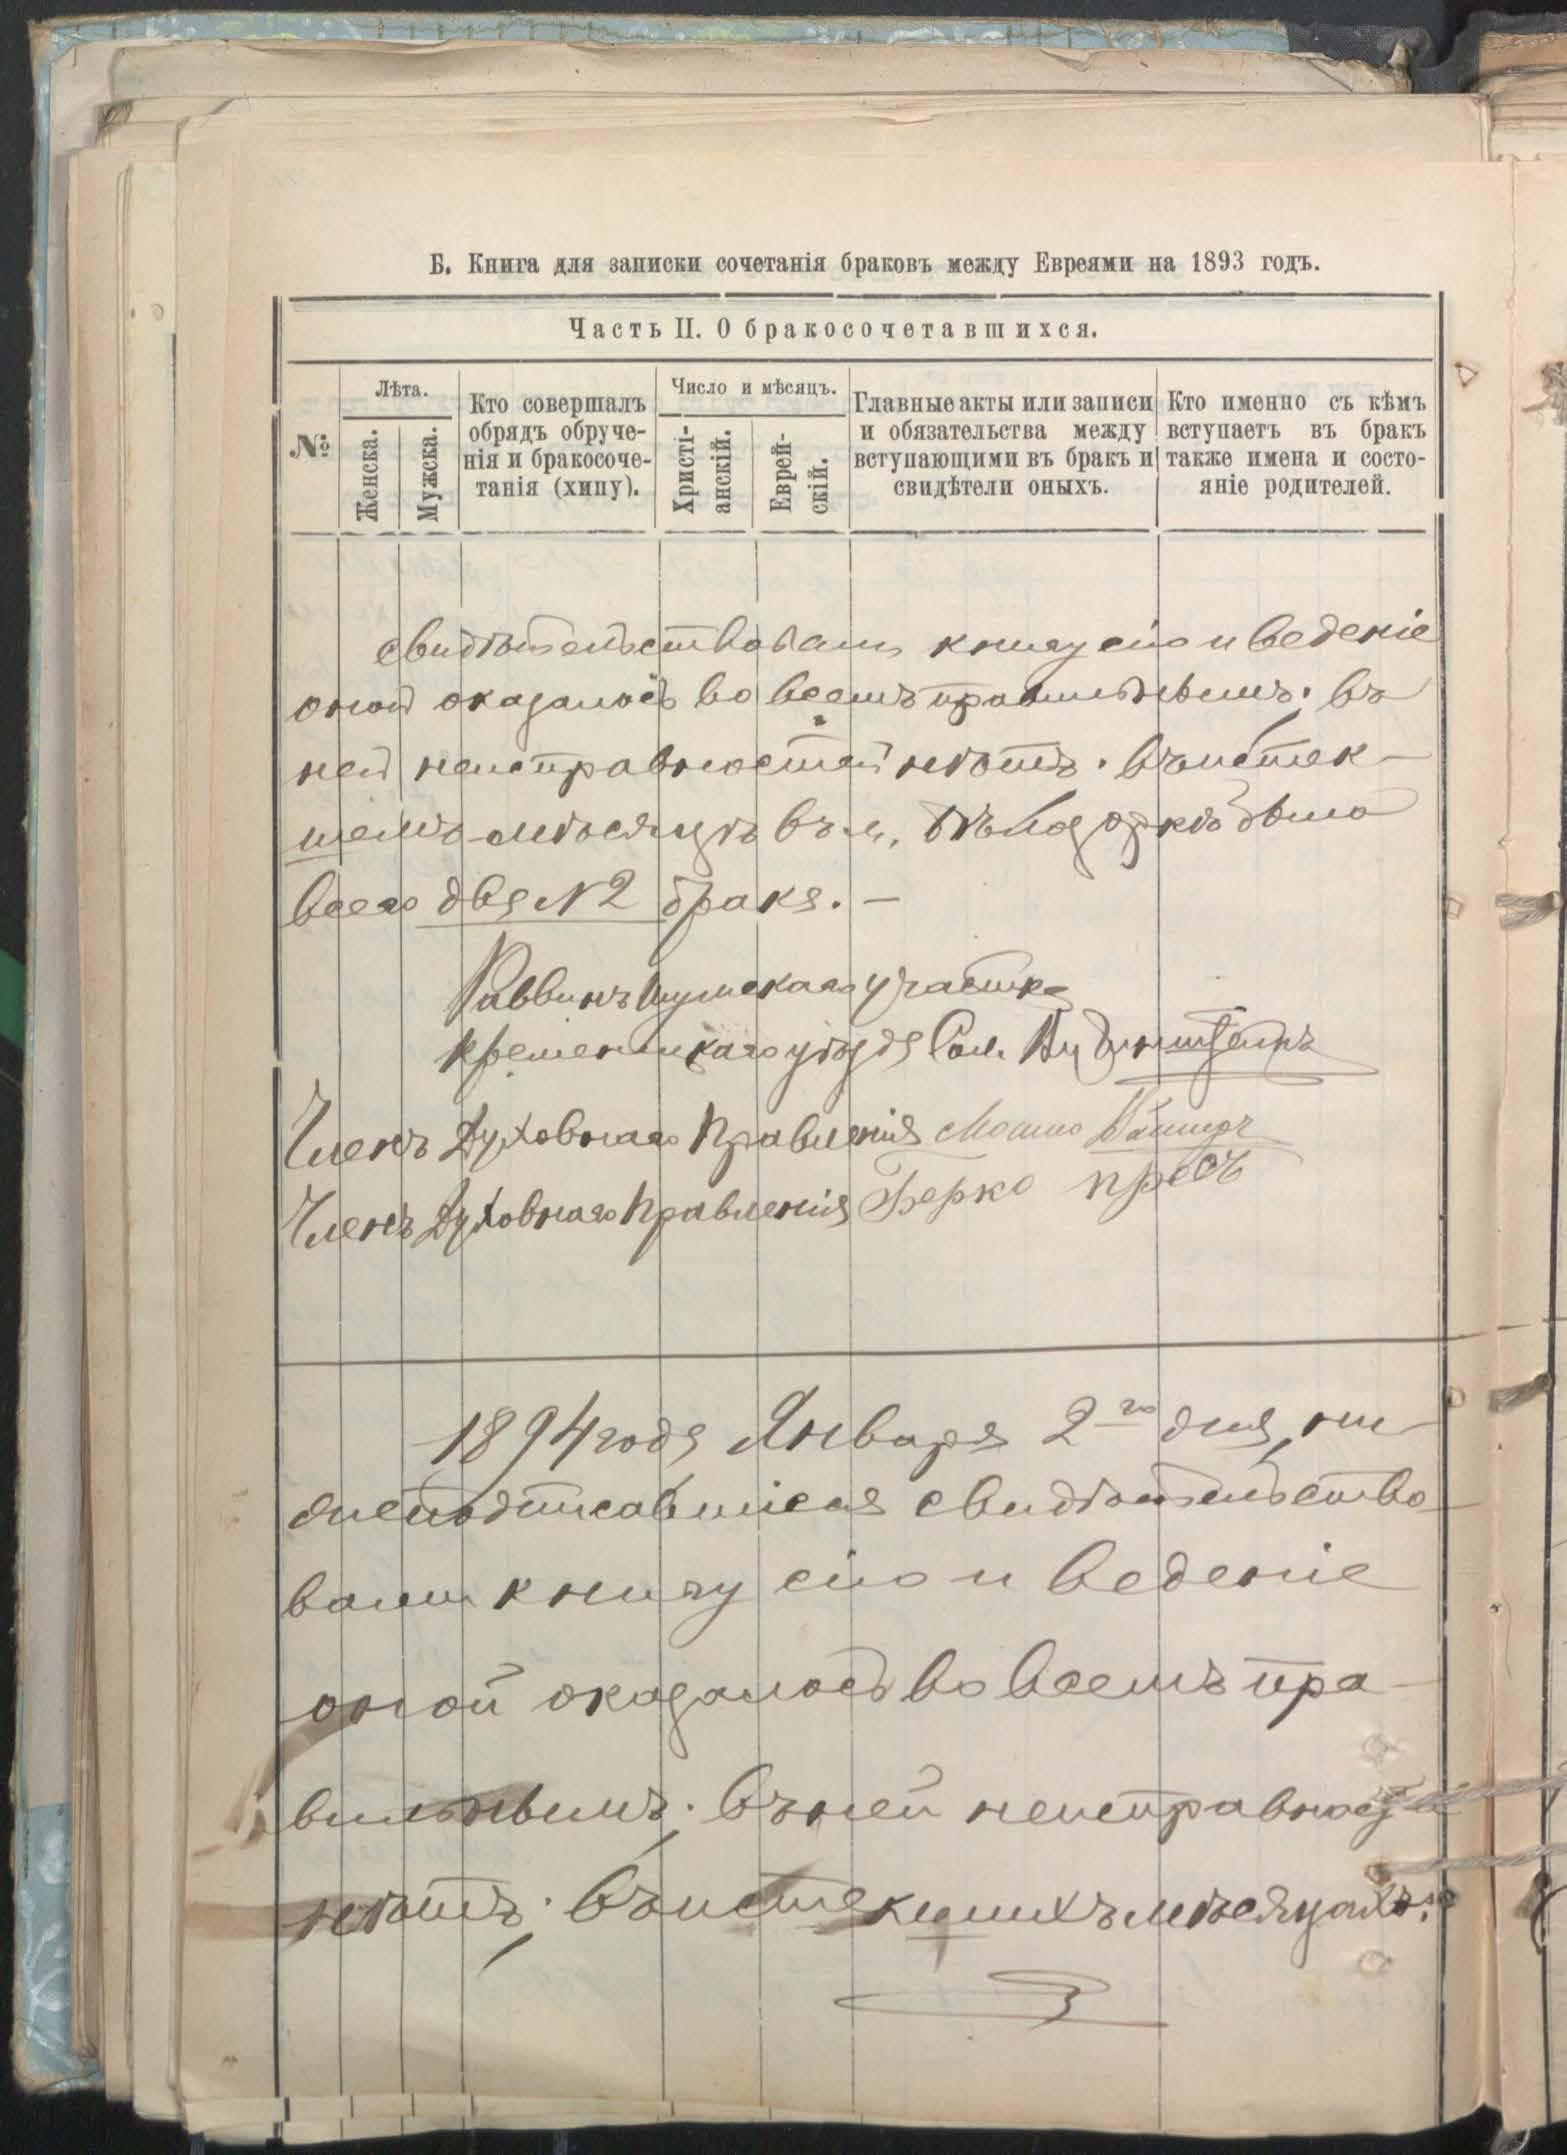 Б. Книга для записки сочетанія браковъ между Евреями на 1893 годъ.
Часть II. О бракосочетавшихся.
№
Лѣта.
Женска.
Мужска.
Кто совершалъ
обрядъ обруче-
нія и бракосоче-
танія (хипу).
Число и мѣсяцъ.
Христі-
анскій.
Еврей-
скій.
Главные акты или записи
и обязательства между
вступающими въ бракъ и
свидѣтели оныхъ.
Кто именно съ кѣмъ
вступаетъ въ бракъ
также имена и состо-
яніе родителей.
свидѣтельствовали книгу сію и веденіе
оной оказалось во всемъ правильнымъ; въ
ней неисправностей нѣтъ. Въ истек-
шемъ мѣсяцѣ въ м. было
всего два № 2 брака. —
Раввинъ Шумскаго участка
Кременецкаго уѣзда Сол.
Членъ Духовнаго Правленія Мошко
Членъ Духовнаго Правленія Берко Пресъ
1894 года Января 2го дня, ни-
жеподписавшіеся свидѣтельство-
вали книгу сію и веденіе
оной оказалось во всемъ пра-
вильнымъ; въ ней неисправност
нѣтъ; въ истекшихъ мѣсяцахъ